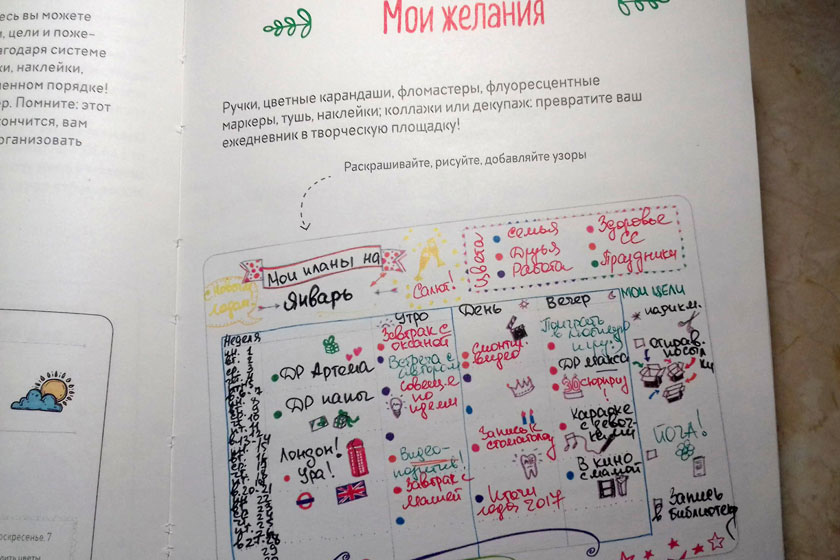 есь вы можете
и, цели и поже-
агодаря системе
ки, наклейки,
ленном порядке!
ер. Помните: этот
кончится, вам
организовать
оскресенье, 7
Мои желания
Ручки, цветные карандаши, фломастеры, флуоресцентные
маркеры, тушь, наклейки; коллажи или декупаж: превратите ваш
ежедневник в творческую площадку!
Раскрашивайте, рисуйте, добавляйте узоры
Мои планы на
Январь
с Новым
годом!
Салют!
Цвета:
семья
Друзья
Работа
Здоровье
СС
Праздники
Неделя
ДР Артема
ДР папы
Лондон!
Ура!
Утро
Завтрак с
Оксаной
Встреча с
Совеща-е
по
идеям
Видео-
Завтрак с
Машей
День
Смонтир.
видео
Запись к
стоматологу
Итоги
года, 2017
Вечер
Поиграть
ДР Макса
сюрприз
!
Караоке
с девоч-
ками
В кино
с мамой
Мои цели
парикм.
Отправ.
посыл
ки
ЙОГА!
Запись
библиотек